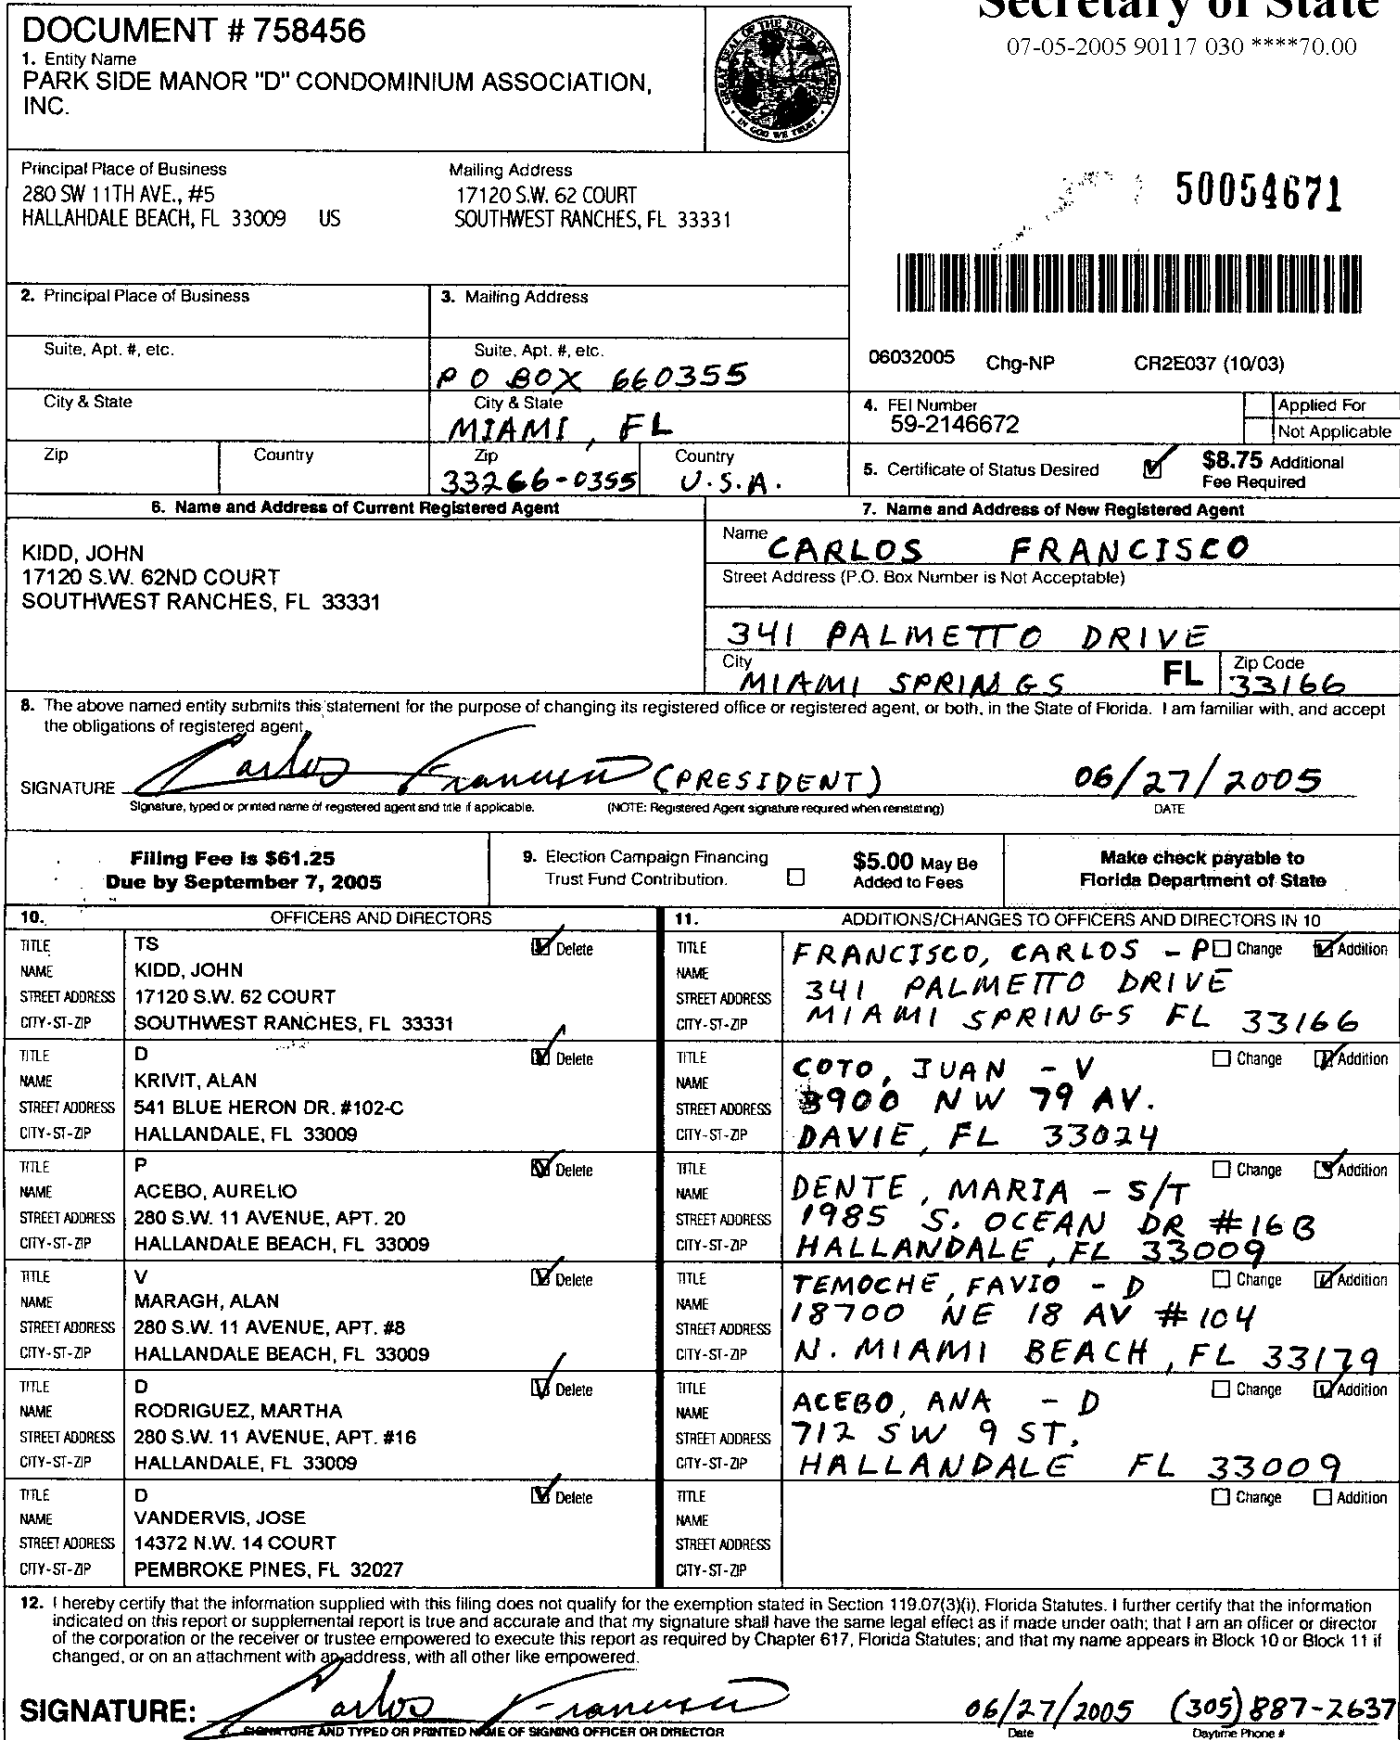 Secretary of State
07-05-2005 90117 030 ****70.00
DOCUMENT # 758456
1. Entity Name
PARK SIDE MANOR "D" CONDOMINIUM ASSOCIATION,
INC.
GREAT SEAL OF THE STATE OF FLORIDA
IN GOD WE TRUST
Principal Place of Business
280 SW 11TH AVE., #5
HALLAHDALE BEACH, FL 33009 US
Mailing Address
17120 S.W. 62 COURT
SOUTHWEST RANCHES, FL 33331
50054671
2. Principal Place of Business
3. Mailing Address
Suite, Apt. #, etc.
Suite, Apt. #, etc.
P O BOX 660355
06032005 Chg-NP CR2E037 (10/03)
City & State
City & State
MIAMI, FL
4. FEI Number
59-2146672
Applied For
Not Applicable
Zip
Country
Zip
33266-0355
Country
U.S.A.
5. Certificate of Status Desired
$8.75 Additional
Fee Required
6. Name and Address of Current Registered Agent
KIDD, JOHN
17120 S.W. 62ND COURT
SOUTHWEST RANCHES, FL 33331
7. Name and Address of New Registered Agent
Name
CARLOS FRANCISCO
Street Address (P.O. Box Number is Not Acceptable)
341 PALMETTO DRIVE
City
MIAMI SPRINGS
FL
Zip Code
33166
8. The above named entity submits this statement for the purpose of changing its registered office or registered agent, or both, in the State of Florida. I am familiar with, and accept
the obligations of registered agent.
SIGNATURE Carlos Francisco (PRESIDENT) 06/27/2005
Signature, typed or printed name of registered agent and title if applicable. (NOTE: Registered Agent signature required when reinstating) DATE
Filing Fee is $61.25
Due by September 7, 2005
9. Election Campaign Financing
Trust Fund Contribution.
$5.00 May Be
Added to Fees
Make check payable to
Florida Department of State
10. OFFICERS AND DIRECTORS
TITLE TS Delete
NAME KIDD, JOHN
STREET ADDRESS 17120 S.W. 62 COURT
CITY-ST-ZIP SOUTHWEST RANCHES, FL 33331
TITLE D Delete
NAME KRIVIT, ALAN
STREET ADDRESS 541 BLUE HERON DR. #102-C
CITY-ST-ZIP HALLANDALE, FL 33009
TITLE P Delete
NAME ACEBO, AURELIO
STREET ADDRESS 280 S.W. 11 AVENUE, APT. 20
CITY-ST-ZIP HALLANDALE BEACH, FL 33009
TITLE V Delete
NAME MARAGH, ALAN
STREET ADDRESS 280 S.W. 11 AVENUE, APT. #8
CITY-ST-ZIP HALLANDALE BEACH, FL 33009
TITLE D Delete
NAME RODRIGUEZ, MARTHA
STREET ADDRESS 280 S.W. 11 AVENUE, APT. #16
CITY-ST-ZIP HALLANDALE, FL 33009
TITLE D Delete
NAME VANDERVIS, JOSE
STREET ADDRESS 14372 N.W. 14 COURT
CITY-ST-ZIP PEMBROKE PINES, FL 32027
11. ADDITIONS/CHANGES TO OFFICERS AND DIRECTORS IN 10
TITLE FRANCISCO, CARLOS - P Change Addition
NAME
STREET ADDRESS 341 PALMETTO DRIVE
CITY-ST-ZIP MIAMI SPRINGS FL 33166
TITLE COTO, JUAN - V Change Addition
NAME
STREET ADDRESS 3900 NW 79 AV.
CITY-ST-ZIP DAVIE, FL 33024
TITLE Change Addition
NAME DENTE, MARIA - S/T
STREET ADDRESS 1985 S. OCEAN DR #16B
CITY-ST-ZIP HALLANDALE, FL 33009
TITLE TEMOCHE, FAVIO - D Change Addition
NAME
STREET ADDRESS 18700 NE 18 AV #104
CITY-ST-ZIP N. MIAMI BEACH, FL 33179
TITLE Change Addition
NAME ACEBO, ANA - D
STREET ADDRESS 712 SW 9 ST.
CITY-ST-ZIP HALLANDALE FL 33009
TITLE Change Addition
NAME
STREET ADDRESS
CITY-ST-ZIP
12. I hereby certify that the information supplied with this filing does not qualify for the exemption stated in Section 119.07(3)(i), Florida Statutes. I further certify that the information
indicated on this report or supplemental report is true and accurate and that my signature shall have the same legal effect as if made under oath; that I am an officer or director
of the corporation or the receiver or trustee empowered to execute this report as required by Chapter 617, Florida Statutes; and that my name appears in Block 10 or Block 11 if
changed, or on an attachment with an address, with all other like empowered.
SIGNATURE: Carlos Francisco 06/27/2005 (305) 887-2637
SIGNATURE AND TYPED OR PRINTED NAME OF SIGNING OFFICER OR DIRECTOR Date Daytime Phone #